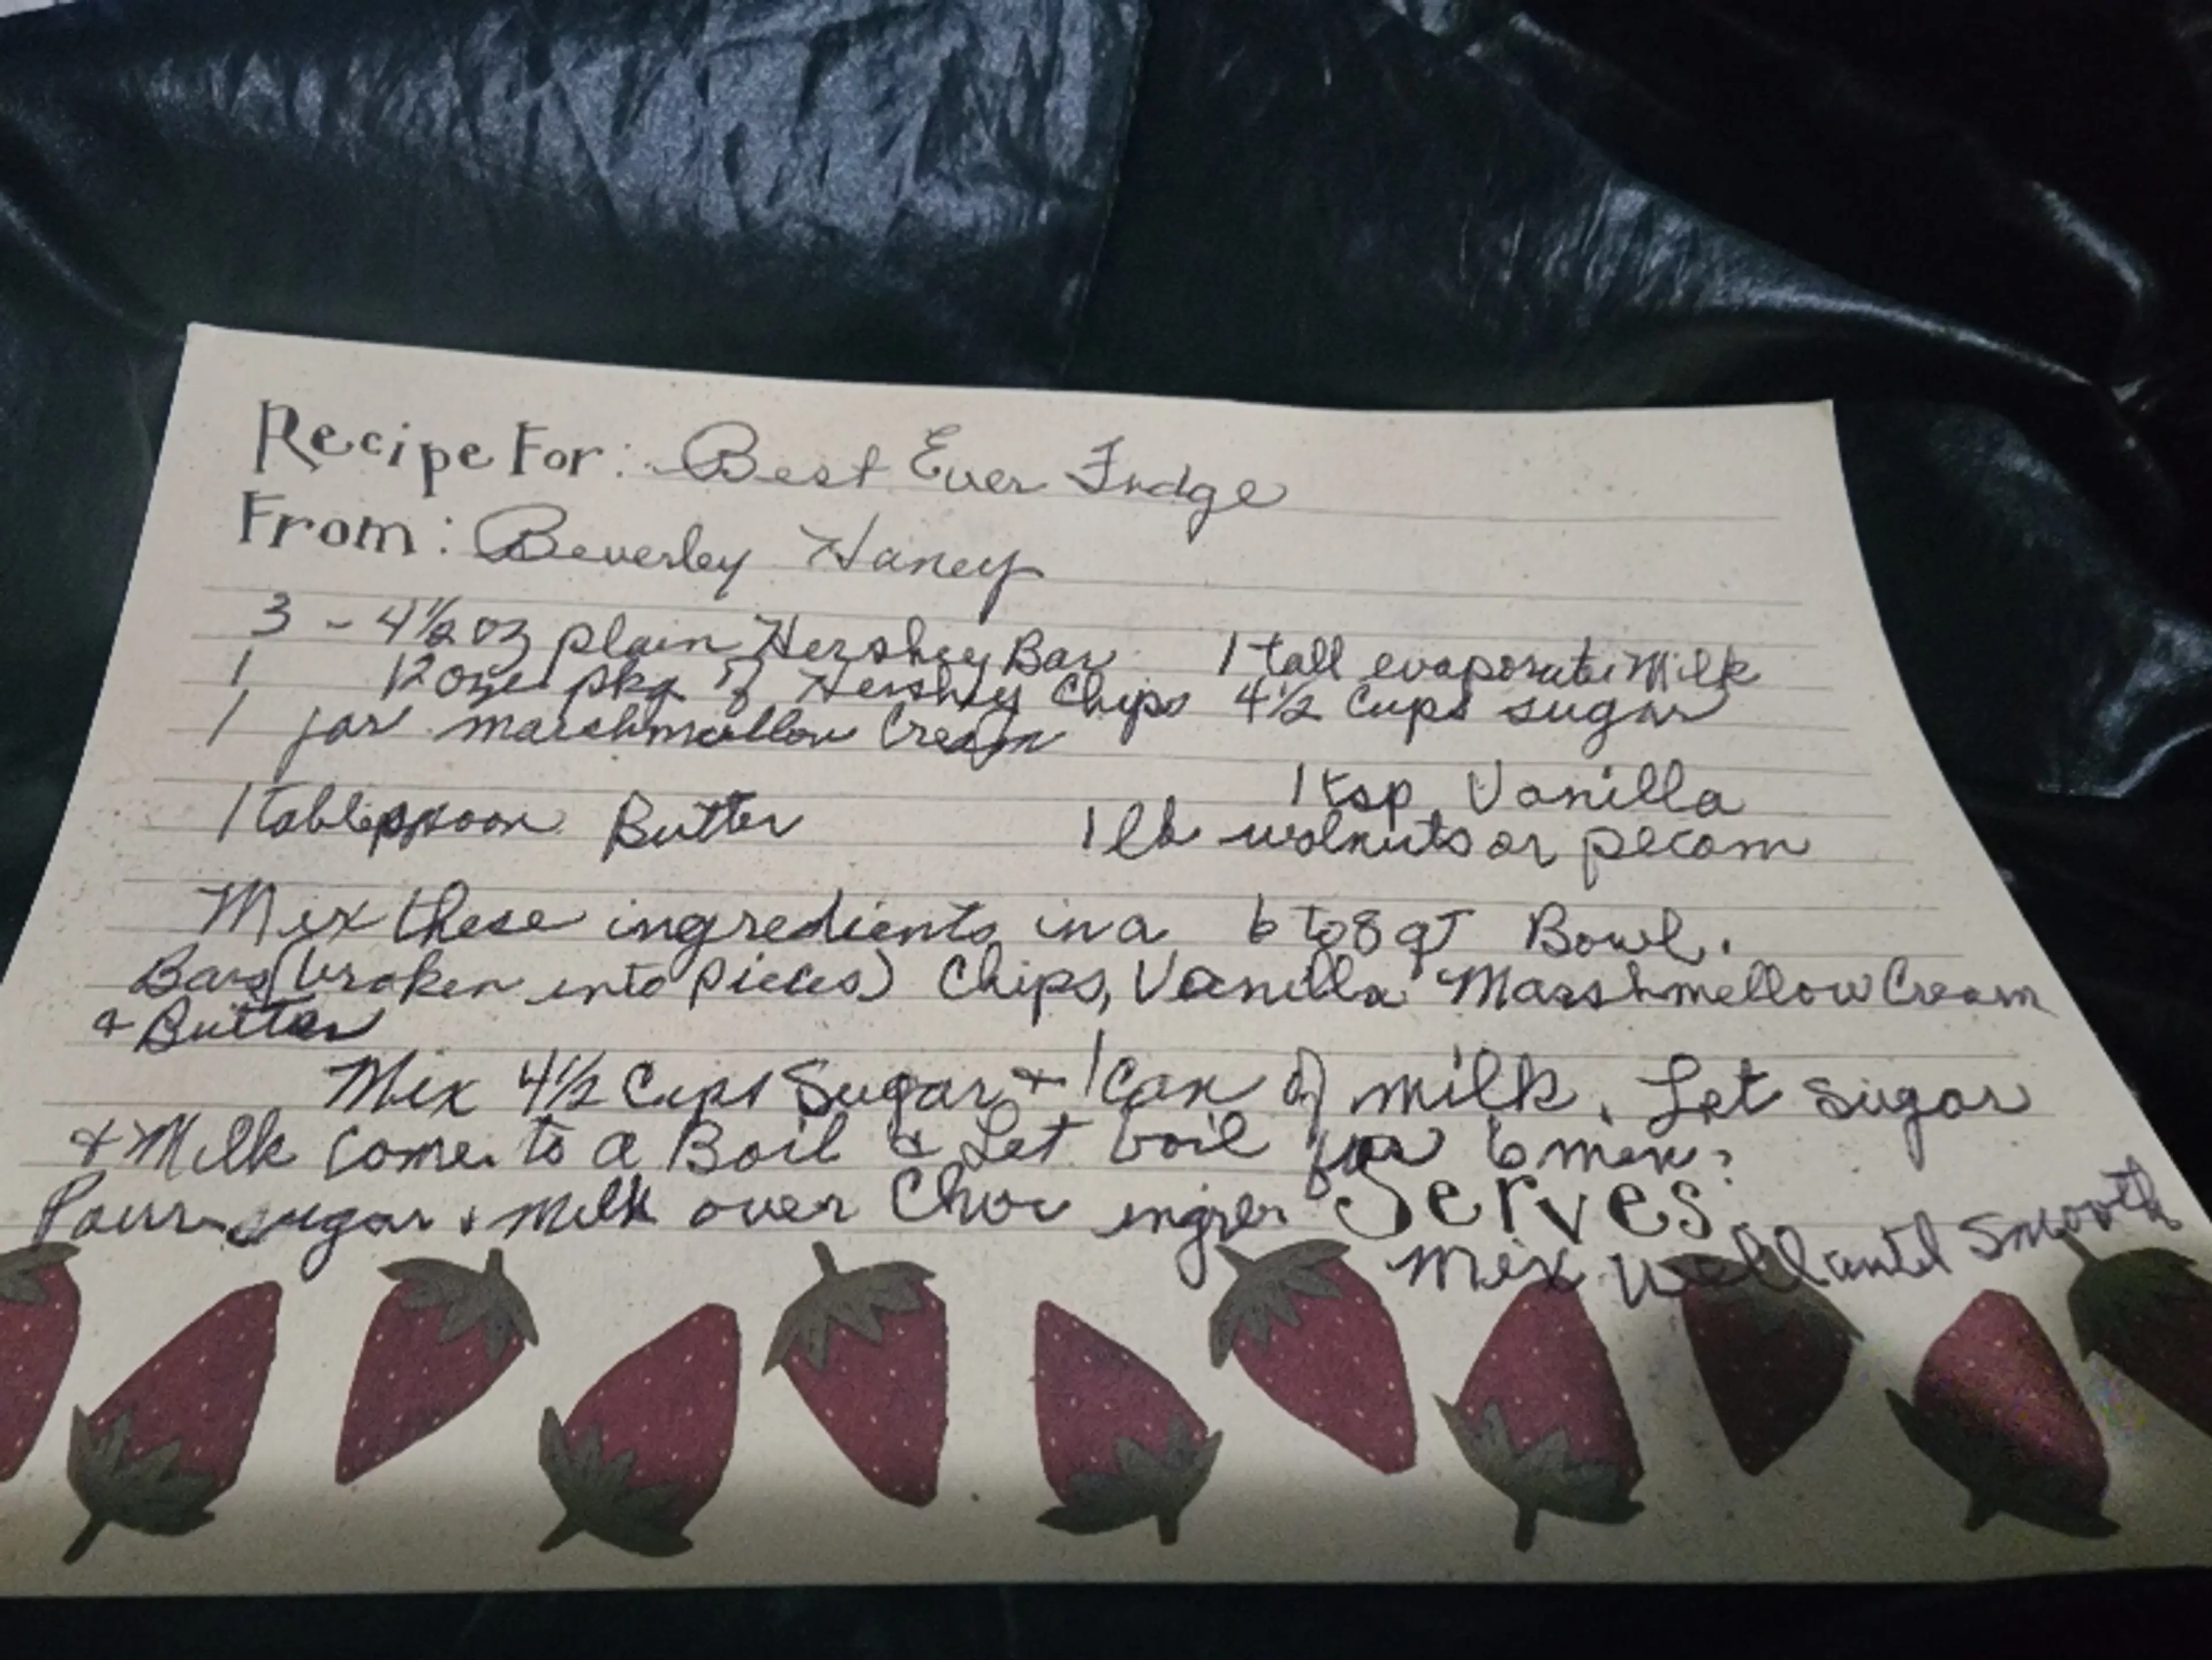 Recipe For: Best Ever Fudge
From: Beverley Haney
3 - 4½ oz plain Hershey Bar 1 tall evaporate Milk
1 12 oz pkg of Hershey Chips 4½ Cups sugar
1 jar marshmallow Cream
1 tsp Vanilla
1 tablespoon Butter 1 lb walnuts or pecans
Mix these ingredients in a 6 to 8 qt Bowl.
Bars (broken into pieces) Chips, Vanilla Marshmellow Cream
& Butter
Mix 4½ Cups Sugar & 1 Can of milk. Let sugar
& Milk come to a Boil & Let boil for 6 min.
Pour sugar & milk over Choc ingrer
Serves:
mix well until smooth